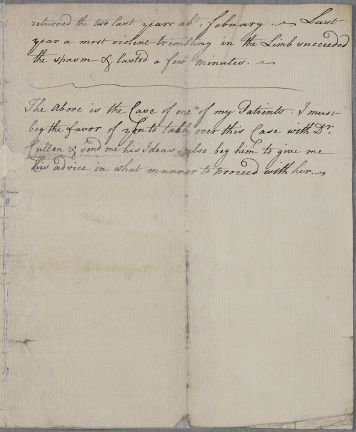 returned the two last years abt. February. Last
year a most violent trembling in the Limb succeeded
the spasm & lasted a few minutes.
The Above is the Case of one of my Patients. I must
beg the favor of you to talk over this Case with Dr.
Cullen & send me his Ideas, also beg him to give me
his advice in what manner to proceed with her.